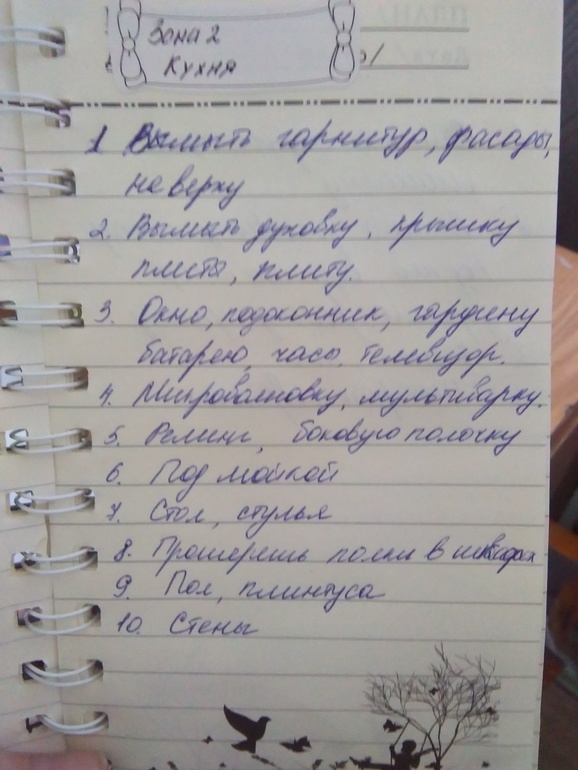 Зона 2
Кухня
1 Вымыть гарнитур, фасады,
на верху
2. Вымыть духовку, крышку
плиты, плиту.
3. Окно, подоконник, гардину
батарею, часы, телевизор.
4. Микроволновку, мультиварку.
5. Релинг, боковую полочку
6. Под мойкой
7. Стол, стулья
8. Протереть полки в шкафах
9. Пол, плинтуса
10. Стены